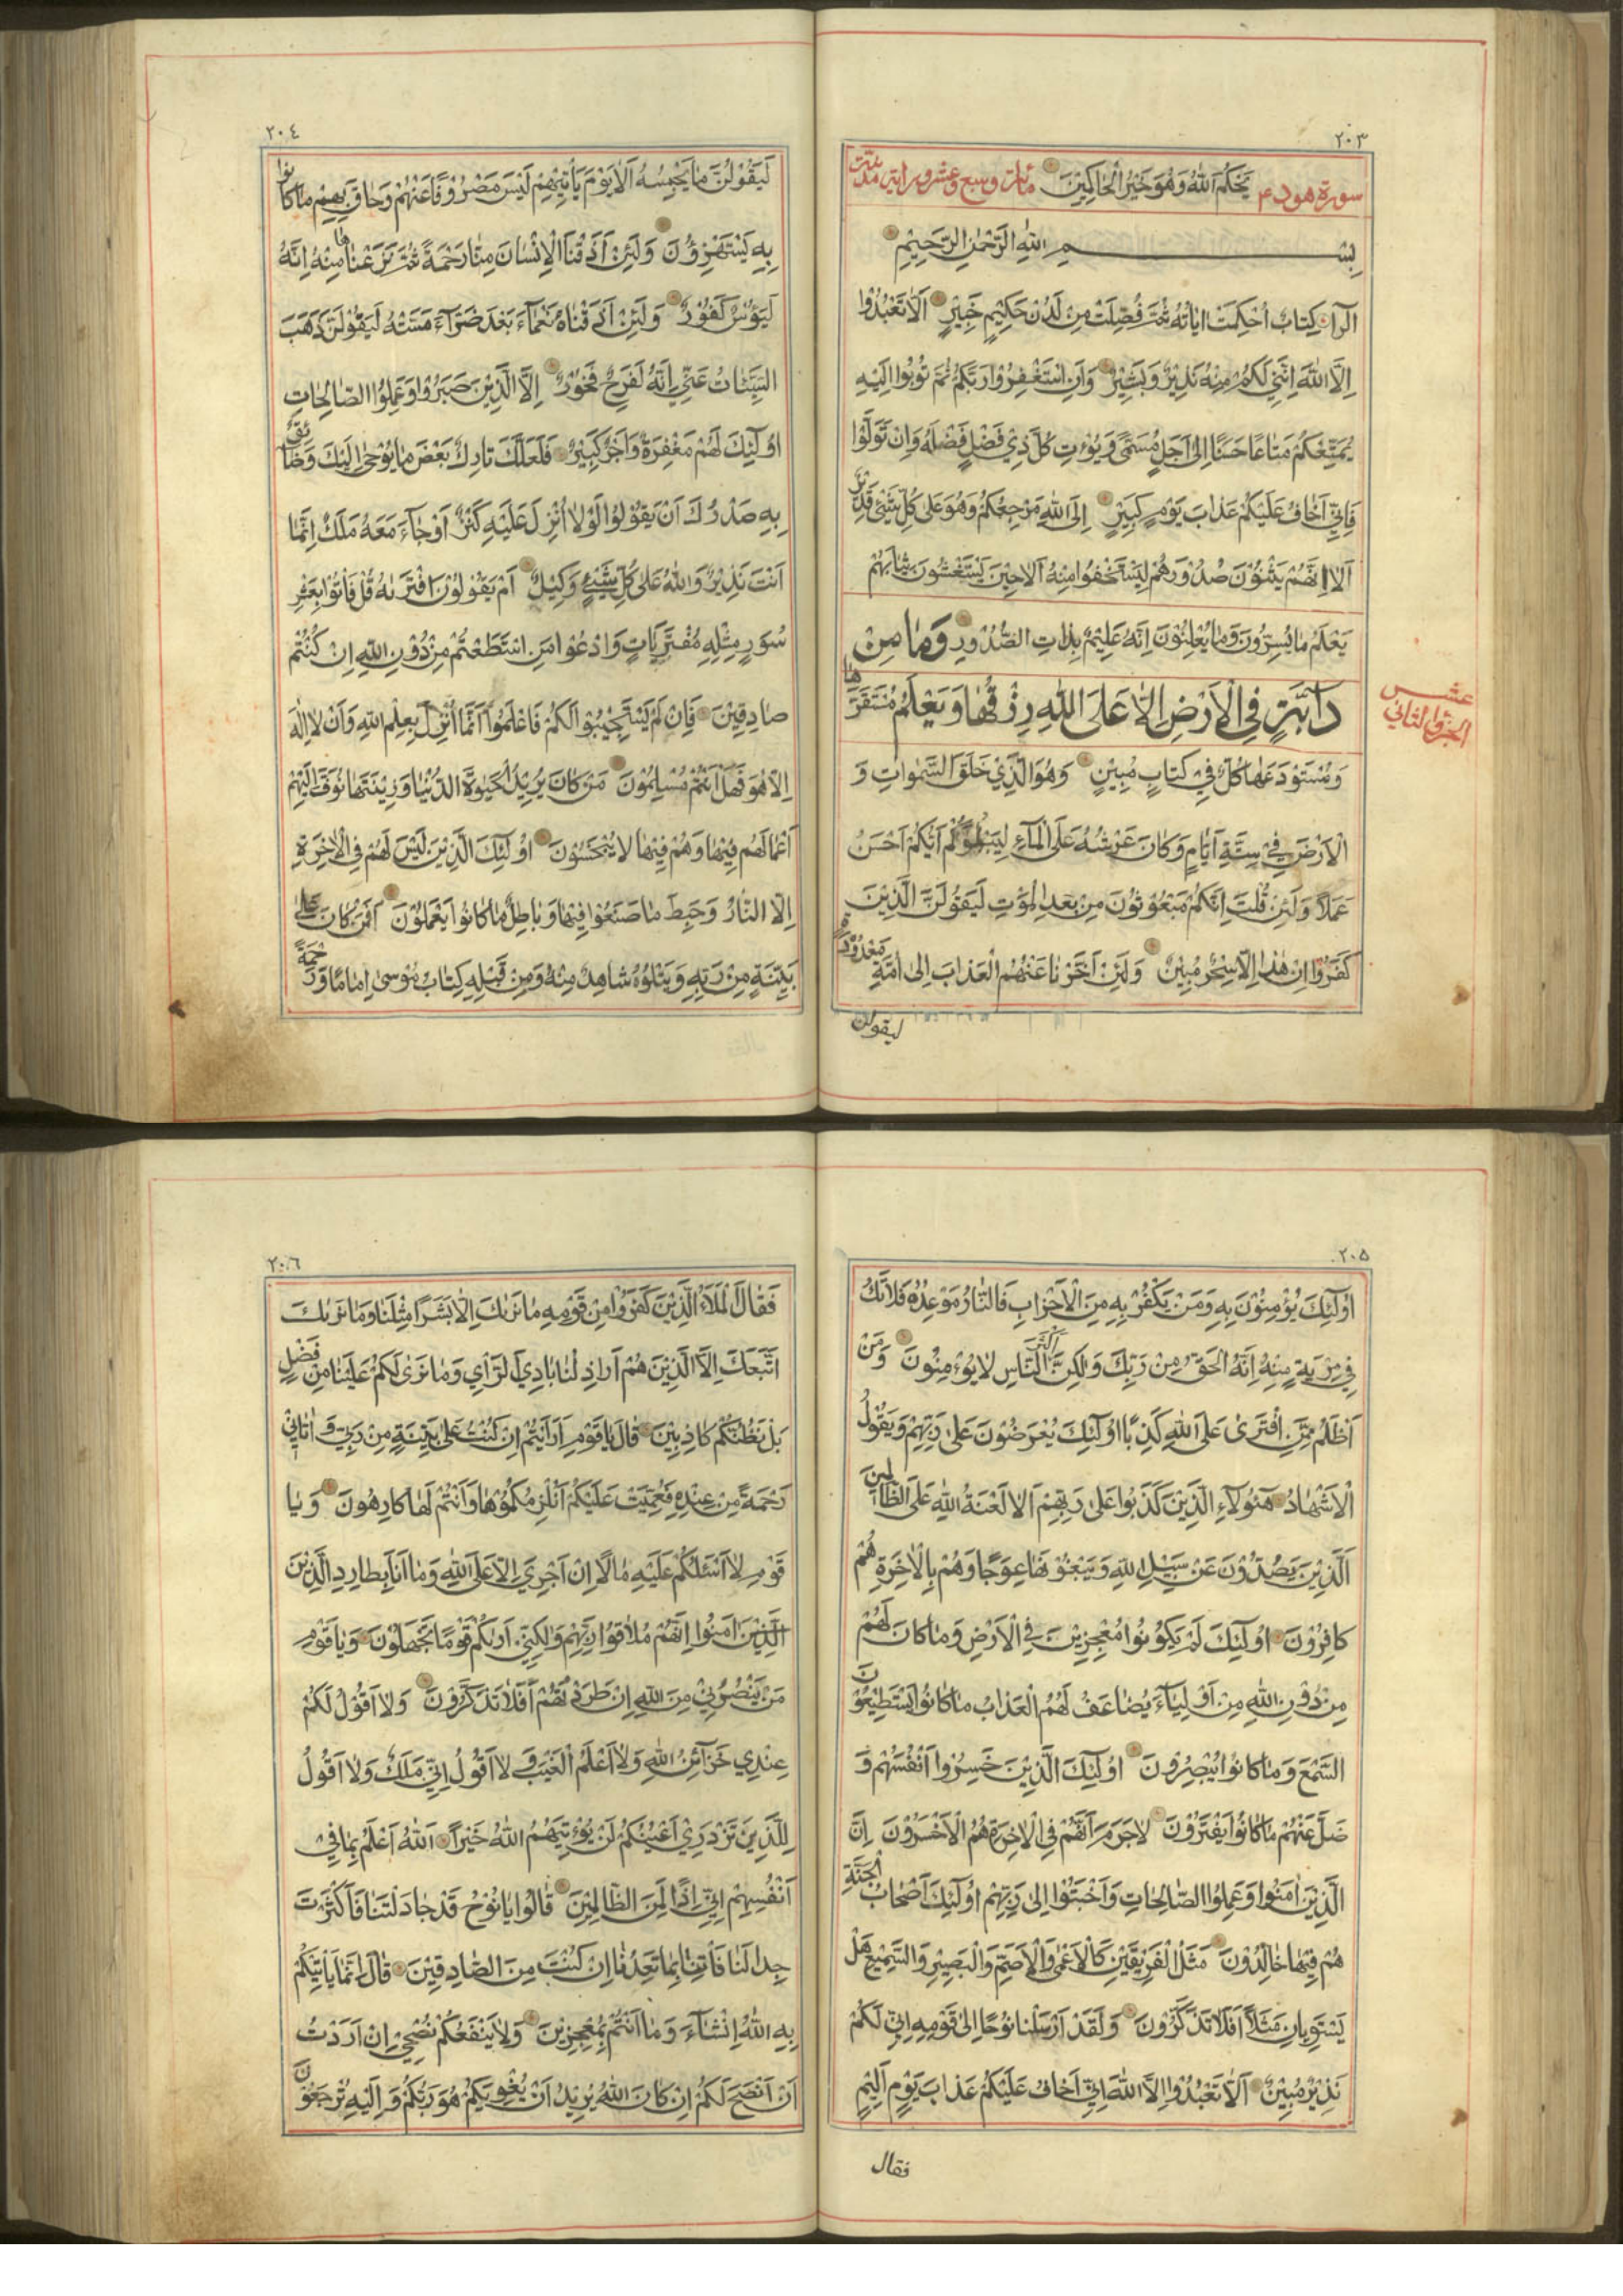 ٢٠٣
يَحْكُمَ اللّٰهُ وَهُوَ خَيْرُ الْحَاكِمِيْنَ
سورة هود
بِسْمِ اللّٰهِ الرَّحْمٰنِ الرَّحِيْمِ
الٓرٰ كِتَابٌ اُحْكِمَتْ اٰيَاتُهُ ثُمَّ فُصِّلَتْ مِنْ لَدُنْ حَكِيْمٍ خَبِيْرٍ اَلَّا تَعْبُدُوْا
اِلَّا اللّٰهَ اِنَّنِيْ لَكُمْ مِنْهُ نَذِيْرٌ وَبَشِيْرٌ وَاَنِ اسْتَغْفِرُوْا رَبَّكُمْ ثُمَّ تُوْبُوْا اِلَيْهِ
يُمَتِّعْكُمْ مَتَاعًا حَسَنًا اِلٰى اَجَلٍ مُسَمًّى وَيُؤْتِ كُلَّ ذِيْ فَضْلٍ فَضْلَهُ وَاِنْ تَوَلَّوْا
فَاِنِّيْ اَخَافُ عَلَيْكُمْ عَذَابَ يَوْمٍ كَبِيْرٍ اِلَى اللّٰهِ مَرْجِعُكُمْ وَهُوَ عَلٰى كُلِّ شَيْءٍ قَدِيْرٌ
اَلَا اِنَّهُمْ يَثْنُوْنَ صُدُوْرَهُمْ لِيَسْتَخْفُوْا مِنْهُ اَلَا حِيْنَ يَسْتَغْشُوْنَ ثِيَابَهُمْ
يَعْلَمُ مَا يُسِرُّوْنَ وَمَا يُعْلِنُوْنَ اِنَّهُ عَلِيْمٌ بِذَاتِ الصُّدُوْرِ وَمَا مِنْ
دَابَّةٍ فِي الْاَرْضِ اِلَّا عَلَى اللّٰهِ رِزْقُهَا وَيَعْلَمُ مُسْتَقَرَّهَا
الجزو الثاني
عشر
وَمُسْتَوْدَعَهَا كُلٌّ فِيْ كِتَابٍ مُبِيْنٍ وَهُوَ الَّذِيْ خَلَقَ السَّمٰوَاتِ وَ
الْاَرْضَ فِيْ سِتَّةِ اَيَّامٍ وَكَانَ عَرْشُهُ عَلَى الْمَآءِ لِيَبْلُوَكُمْ اَيُّكُمْ اَحْسَنُ
عَمَلًا وَلَئِنْ قُلْتَ اِنَّكُمْ مَبْعُوْثُوْنَ مِنْ بَعْدِ الْمَوْتِ لَيَقُوْلَنَّ الَّذِيْنَ
كَفَرُوْا اِنْ هٰذَا اِلَّا سِحْرٌ مُبِيْنٌ وَلَئِنْ اَخَّرْنَا عَنْهُمُ الْعَذَابَ اِلٰى اُمَّةٍ مَعْدُوْدَةٍ
ليقولن
٢٠٤
لَيَقُوْلُنَّ مَا يَحْبِسُهُ اَلَا يَوْمَ يَأْتِيْهِمْ لَيْسَ مَصْرُوْفًا عَنْهُمْ وَحَاقَ بِهِمْ مَا كَانُوْا
بِهِ يَسْتَهْزِؤُنَ وَلَئِنْ اَذَقْنَا الْاِنْسَانَ مِنَّا رَحْمَةً ثُمَّ نَزَعْنَاهَا مِنْهُ اِنَّهُ
لَيَؤُسٌ كَفُوْرٌ وَلَئِنْ اَذَقْنَاهُ نَعْمَآءَ بَعْدَ ضَرَّآءَ مَسَّتْهُ لَيَقُوْلَنَّ ذَهَبَ
السَّيِّئَاتُ عَنِّيْ اِنَّهُ لَفَرِحٌ فَخُوْرٌ اِلَّا الَّذِيْنَ صَبَرُوْا وَعَمِلُوا الصَّالِحَاتِ
اُولٰٓئِكَ لَهُمْ مَغْفِرَةٌ وَاَجْرٌ كَبِيْرٌ فَلَعَلَّكَ تَارِكٌ بَعْضَ مَا يُوْحٰى اِلَيْكَ وَضَآئِقٌ
بِهِ صَدْرُكَ اَنْ يَقُوْلُوْا لَوْلَا اُنْزِلَ عَلَيْهِ كَنْزٌ اَوْ جَآءَ مَعَهُ مَلَكٌ اِنَّمَا
اَنْتَ نَذِيْرٌ وَاللّٰهُ عَلٰى كُلِّ شَيْءٍ وَكِيْلٌ اَمْ يَقُوْلُوْنَ افْتَرٰىهُ قُلْ فَأْتُوْا بِعَشْرِ
سُوَرٍ مِثْلِهِ مُفْتَرَيَاتٍ وَادْعُوْا مَنِ اسْتَطَعْتُمْ مِنْ دُوْنِ اللّٰهِ اِنْ كُنْتُمْ
صَادِقِيْنَ فَاِنْ لَمْ يَسْتَجِيْبُوْا لَكُمْ فَاعْلَمُوْا اَنَّمَا اُنْزِلَ بِعِلْمِ اللّٰهِ وَاَنْ لَا اِلٰهَ
اِلَّا هُوَ فَهَلْ اَنْتُمْ مُسْلِمُوْنَ مَنْ كَانَ يُرِيْدُ الْحَيٰوةَ الدُّنْيَا وَزِيْنَتَهَا نُوَفِّ اِلَيْهِمْ
اَعْمَالَهُمْ فِيْهَا وَهُمْ فِيْهَا لَا يُبْخَسُوْنَ اُولٰٓئِكَ الَّذِيْنَ لَيْسَ لَهُمْ فِي الْاٰخِرَةِ
اِلَّا النَّارُ وَحَبِطَ مَا صَنَعُوْا فِيْهَا وَبَاطِلٌ مَا كَانُوْا يَعْمَلُوْنَ اَفَمَنْ كَانَ عَلٰى
بَيِّنَةٍ مِنْ رَبِّهِ وَيَتْلُوْهُ شَاهِدٌ مِنْهُ وَمِنْ قَبْلِهِ كِتَابُ مُوْسٰى اِمَامًا وَرَحْمَةً
٢٠٥
اُولٰٓئِكَ يُؤْمِنُوْنَ بِهِ وَمَنْ يَكْفُرْ بِهِ مِنَ الْاَحْزَابِ فَالنَّارُ مَوْعِدُهُ فَلَا تَكُ
فِيْ مِرْيَةٍ مِنْهُ اِنَّهُ الْحَقُّ مِنْ رَبِّكَ وَلٰكِنَّ اَكْثَرَ النَّاسِ لَا يُؤْمِنُوْنَ وَمَنْ
اَظْلَمُ مِمَّنِ افْتَرٰى عَلَى اللّٰهِ كَذِبًا اُولٰٓئِكَ يُعْرَضُوْنَ عَلٰى رَبِّهِمْ وَيَقُوْلُ
الْاَشْهَادُ هٰٓؤُلَآءِ الَّذِيْنَ كَذَبُوْا عَلٰى رَبِّهِمْ اَلَا لَعْنَةُ اللّٰهِ عَلَى الظَّالِمِيْنَ
اَلَّذِيْنَ يَصُدُّوْنَ عَنْ سَبِيْلِ اللّٰهِ وَيَبْغُوْنَهَا عِوَجًا وَهُمْ بِالْاٰخِرَةِ هُمْ
كَافِرُوْنَ اُولٰٓئِكَ لَمْ يَكُوْنُوْا مُعْجِزِيْنَ فِي الْاَرْضِ وَمَا كَانَ لَهُمْ
مِنْ دُوْنِ اللّٰهِ مِنْ اَوْلِيَآءَ يُضَاعَفُ لَهُمُ الْعَذَابُ مَا كَانُوْا يَسْتَطِيْعُوْنَ
السَّمْعَ وَمَا كَانُوْا يُبْصِرُوْنَ اُولٰٓئِكَ الَّذِيْنَ خَسِرُوْا اَنْفُسَهُمْ وَ
ضَلَّ عَنْهُمْ مَا كَانُوْا يَفْتَرُوْنَ لَاجَرَمَ اَنَّهُمْ فِي الْاٰخِرَةِ هُمُ الْاَخْسَرُوْنَ اِنَّ
الَّذِيْنَ اٰمَنُوْا وَعَمِلُوا الصَّالِحَاتِ وَاَخْبَتُوْا اِلٰى رَبِّهِمْ اُولٰٓئِكَ اَصْحَابُ الْجَنَّةِ
هُمْ فِيْهَا خَالِدُوْنَ مَثَلُ الْفَرِيْقَيْنِ كَالْاَعْمٰى وَالْاَصَمِّ وَالْبَصِيْرِ وَالسَّمِيْعِ هَلْ
يَسْتَوِيَانِ مَثَلًا اَفَلَا تَذَكَّرُوْنَ وَلَقَدْ اَرْسَلْنَا نُوْحًا اِلٰى قَوْمِهِ اِنِّيْ لَكُمْ
نَذِيْرٌ مُبِيْنٌ اَلَّا تَعْبُدُوْا اِلَّا اللّٰهَ اِنِّيْ اَخَافُ عَلَيْكُمْ عَذَابَ يَوْمٍ اَلِيْمٍ
فقال
٢٠٦
فَقَالَ الْمَلَاُ الَّذِيْنَ كَفَرُوْا مِنْ قَوْمِهِ مَا نَرٰىكَ اِلَّا بَشَرًا مِثْلَنَا وَمَا نَرٰىكَ
اتَّبَعَكَ اِلَّا الَّذِيْنَ هُمْ اَرَاذِلُنَا بَادِيَ الرَّاْيِ وَمَا نَرٰى لَكُمْ عَلَيْنَا مِنْ فَضْلٍ
بَلْ نَظُنُّكُمْ كَاذِبِيْنَ قَالَ يَا قَوْمِ اَرَاَيْتُمْ اِنْ كُنْتُ عَلٰى بَيِّنَةٍ مِنْ رَبِّيْ وَاٰتَانِيْ
رَحْمَةً مِنْ عِنْدِهِ فَعُمِّيَتْ عَلَيْكُمْ اَنُلْزِمُكُمُوْهَا وَاَنْتُمْ لَهَا كَارِهُوْنَ وَيَا
قَوْمِ لَا اَسْئَلُكُمْ عَلَيْهِ مَالًا اِنْ اَجْرِيَ اِلَّا عَلَى اللّٰهِ وَمَا اَنَا بِطَارِدِ الَّذِيْنَ
الَّذِيْنَ اٰمَنُوْا اِنَّهُمْ مُلَاقُوْا رَبِّهِمْ وَلٰكِنِّيْ اَرٰىكُمْ قَوْمًا تَجْهَلُوْنَ وَيَا قَوْمِ
مَنْ يَنْصُرُنِيْ مِنَ اللّٰهِ اِنْ طَرَدْتُهُمْ اَفَلَا تَذَكَّرُوْنَ وَلَا اَقُوْلُ لَكُمْ
عِنْدِيْ خَزَآئِنُ اللّٰهِ وَلَا اَعْلَمُ الْغَيْبَ وَلَا اَقُوْلُ اِنِّيْ مَلَكٌ وَلَا اَقُوْلُ
لِلَّذِيْنَ تَزْدَرِيْ اَعْيُنُكُمْ لَنْ يُؤْتِيَهُمُ اللّٰهُ خَيْرًا اَللّٰهُ اَعْلَمُ بِمَا فِيْ
اَنْفُسِهِمْ اِنِّيْ اِذًا لَمِنَ الظَّالِمِيْنَ قَالُوْا يَا نُوْحُ قَدْ جَادَلْتَنَا فَاَكْثَرْتَ
جِدَالَنَا فَأْتِنَا بِمَا تَعِدُنَا اِنْ كُنْتَ مِنَ الصَّادِقِيْنَ قَالَ اِنَّمَا يَأْتِيْكُمْ
بِهِ اللّٰهُ اِنْ شَآءَ وَمَا اَنْتُمْ بِمُعْجِزِيْنَ وَلَا يَنْفَعُكُمْ نُصْحِيْ اِنْ اَرَدْتُ
اَنْ اَنْصَحَ لَكُمْ اِنْ كَانَ اللّٰهُ يُرِيْدُ اَنْ يُغْوِيَكُمْ هُوَ رَبُّكُمْ وَاِلَيْهِ تُرْجَعُوْنَ